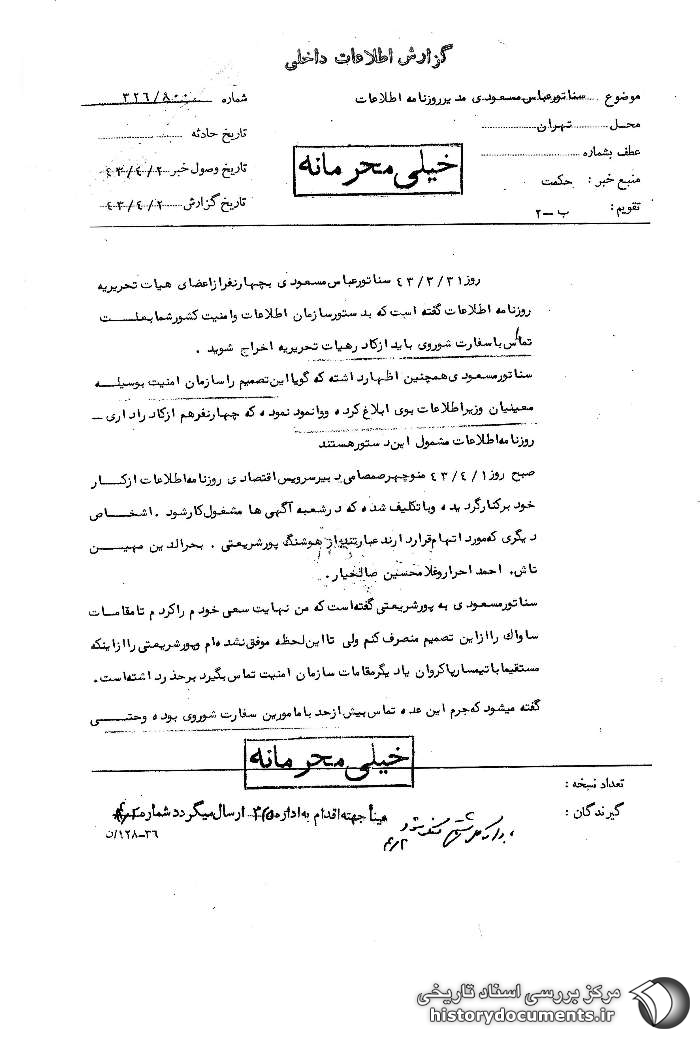 گزارش اطلاعات داخلی
موضوع ....سناتورعباس مسعودی مدیرروزنامه اطلاعات
شماره ۳۲۶/۸۰۰
محل........تهران........
تاریخ حادثه ........
عطف بشماره ........
تاریخ وصول خبر ۴۳/۴/۲
منبع خبر : حکمت
تاریخ گزارش ۴۳/۴/۲
تقویم: ب-۲
خیلی محرمانه
روز ۴۳/۳/۳۱ سناتورعباس مسعودی بچهارنفرازاعضای هیات تحریریه
روزنامه اطلاعات گفته است که بدستورسازمان اطلاعات وامنیت کشورشمابعلت
تماس باسفارت شوروی باید ازکادرهیات تحریریه اخراج شوید .
سناتورمسعودی همچنین اظهارداشته که گویااین تصمیم راسازمان امنیت بوسیله
معینیان وزیراطلاعات بوی ابلاغ کرده ووانمودنموده که چهارنفرهم ازکاداداری -
روزنامه اطلاعات مشمول این دستورهستند
صبح روز ۴۳/۴/۱ منوچهرصمصامی دبیرسرویس اقتصادی روزنامه اطلاعات ازکار
خود برکنارگردیده وباوتکلیف شده که درشعبه آگهی ها مشغول کارشود . اشخاص
دیگری که مورد اتهام قراردارند عبارتند از هوشنگ پورشریعتی . بحرالدین مهین
تاش. احمد احراروغلامحسین صالحیار.
سناتورمسعودی به پورشریعتی گفته است که من نهایت سعی خودم راکردم تامقامات
ساواک راازاین تصمیم منصرف کنم ولی تااین لحظه موفق نشده ام وپورشریعتی راازاینکه
مستقیما باتیمسارپاکروان یادیگرمقامات سازمان امنیت تماس بگیرد برحذر داشته است.
گفته میشود که جرم این عده تماس بیش ازحد بامامورین سفارت شوروی بوده وحتی
خیلی محرمانه
تعداد نسخه :
گیرندگان : عیناً جهته اقدام به اداره ۳۲۵ ارسال میگردد شماره
۳۶-۱۲۸/ن
مرکز بررسی اسناد تاریخی
historydocuments.ir